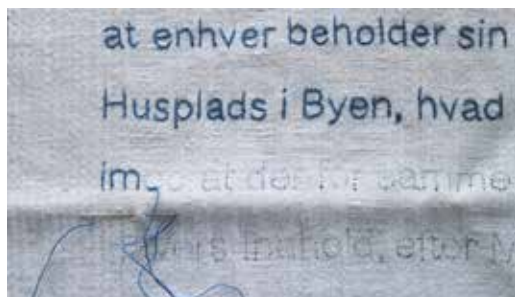 at enhver beholder sin
Husplads i Byen, hvad
im at der for samme
Indhold, efter